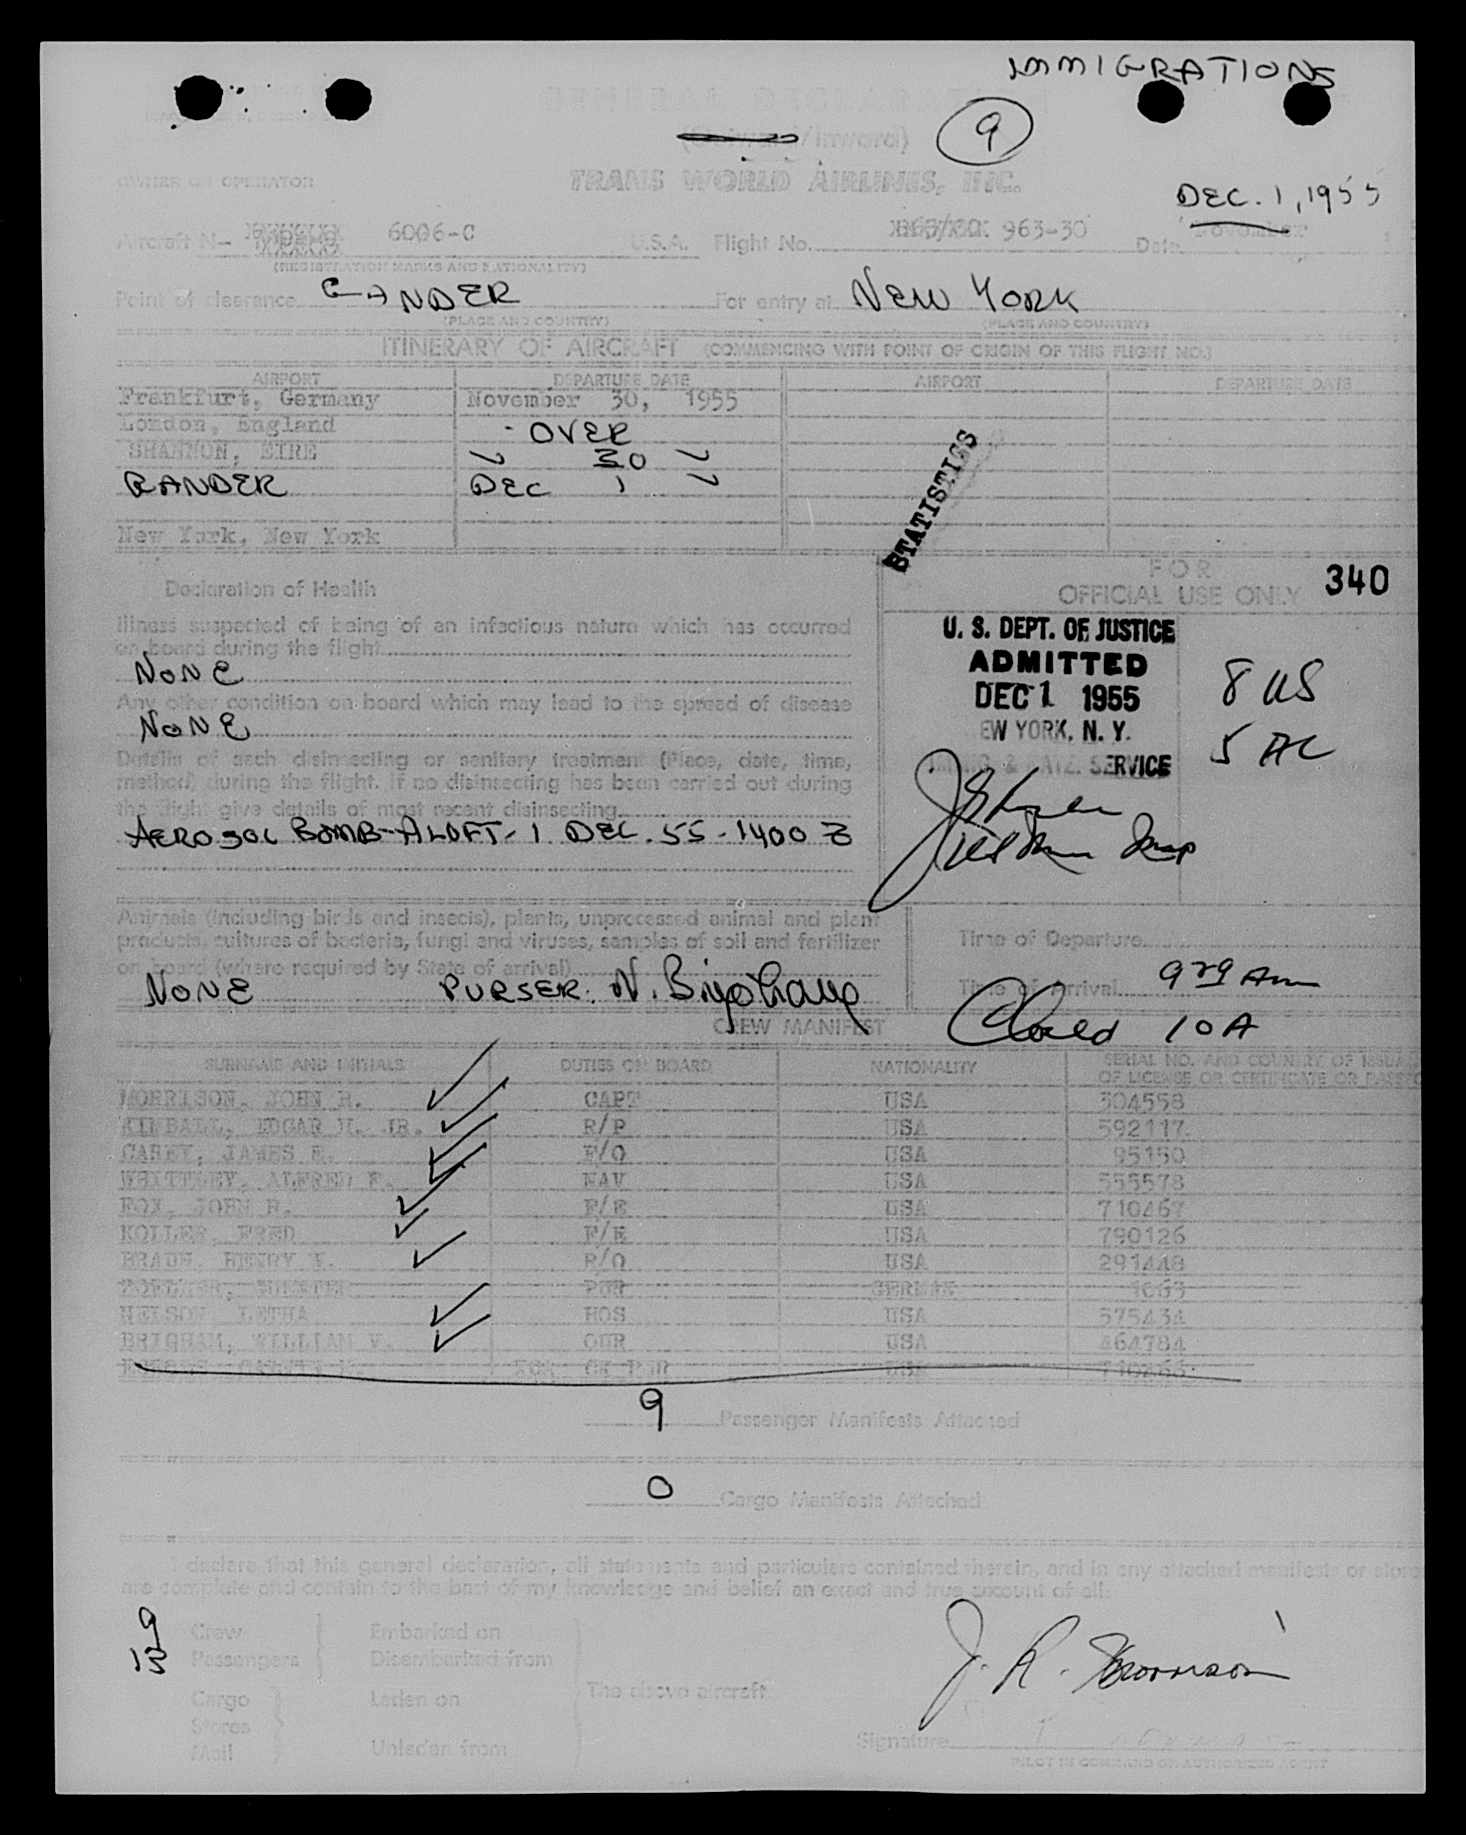 IMMIGRATIONS
9
(Outward/Inward)
DEC. 1, 1955
OWNER OR OPERATOR TRANS WORLD AIRLINES, INC.
Aircraft N- 6006-C U.S.A. Flight No. 963-30 Date November
(REGISTRATION MARKS AND NATIONALITY)
Point of clearance GANDER For entry at NEW YORK
(PLACE AND COUNTRY) (PLACE AND COUNTRY)
ITINERARY OF AIRCRAFT (COMMENCING WITH POINT OF ORIGIN OF THIS FLIGHT NO.)
AIRPORT DEPARTURE DATE AIRPORT DEPARTURE DATE
Frankfurt, Germany November 30, 1955
London, England - OVER
SHANNON, EIRE " 30 "
GANDER DEC 1 "
New York, New York
STATISTICS
Declaration of Health
FOR
OFFICIAL USE ONLY 340
Illness suspected of being of an infectious nature which has occurred
on board during the flight
NONE
Any other condition on board which may lead to the spread of disease
NONE
Details of each disinsecting or sanitary treatment (Place, date, time,
method) during the flight. If no disinsecting has been carried out during
the flight give details of most recent disinsecting
AEROSOL BOMB-ALOFT-1 DEC.55-1400 Z
U. S. DEPT. OF JUSTICE
ADMITTED
DEC 1 1955
EW YORK, N. Y.
IMMIG. & NATZ. SERVICE
8 US
5 AL
Insp
Animals (including birds and insects), plants, unprocessed animal and plant
products, cultures of bacteria, fungi and viruses, samples of soil and fertilizer
on board (where required by State of arrival)
NONE PURSER:
Time of Departure
Time of Arrival 929 Am
Closed 10 A
CREW MANIFEST
SURNAME AND INITIALS DUTIES ON BOARD NATIONALITY SERIAL NO. AND COUNTRY OF ISSUA
OF LICENSE OR CERTIFICATE OR PASSPO
MORRISON, JOHN R. CAPT USA 304558
KIMBALL, EDGAR M. JR. R/P USA 592117
CAREY, JAMES E. F/O USA 95150
WHITTLEY, ALFRED F. NAV USA 555578
FOX, JOHN H. F/E USA 710467
KOLLER, FRED F/E USA 790126
BRAUN, HENRY V. R/O USA 291448
PUR GERMAN 1663
NELSON LETHA HOS USA 575434
BRIGHAM, WILLIAM V. OUR USA 464784
USA 710466
9 Passenger Manifests Attached
0 Cargo Manifests Attached
I declare that this general declaration, all statements and particulars contained therein, and in any attached manifests or store
are complete and contain to the best of my knowledge and belief an exact and true account of all:
9
13
Crew Embarked on
Passengers Disembarked from
Cargo Laden on The above aircraft
Stores
Mail Unladen from
J. R. Morrison
Signature
PILOT IN COMMAND OR AUTHORIZED AGENT